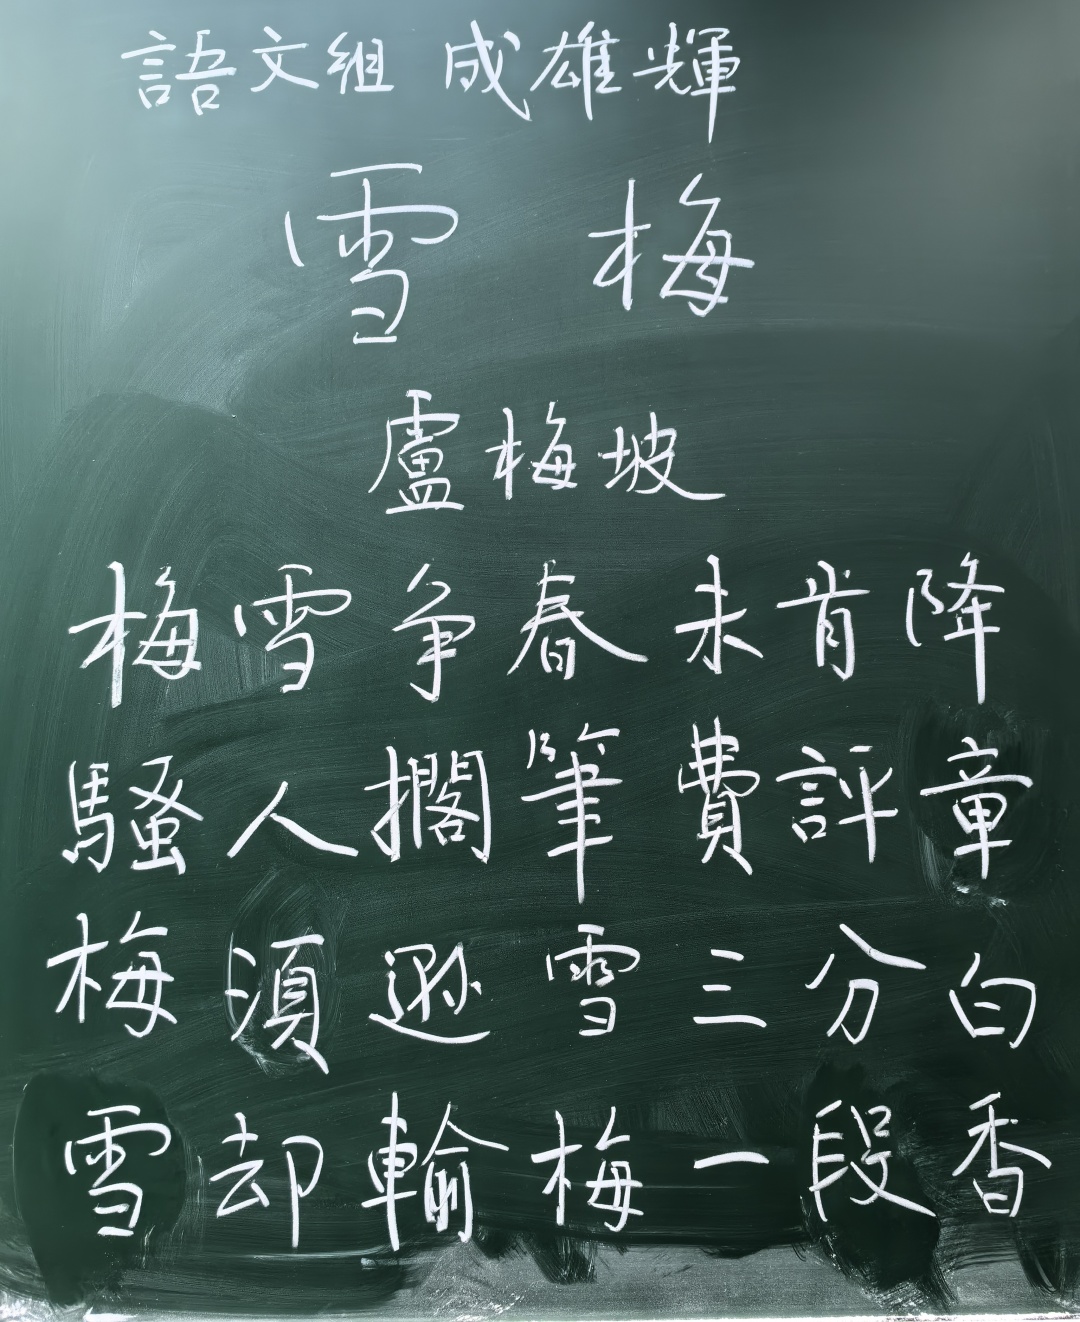 語文組 成雄輝
雪 梅
盧梅坡
梅雪争春未肯降
騷人擱筆費評章
梅須遜雪三分白
雪却輸梅一段香